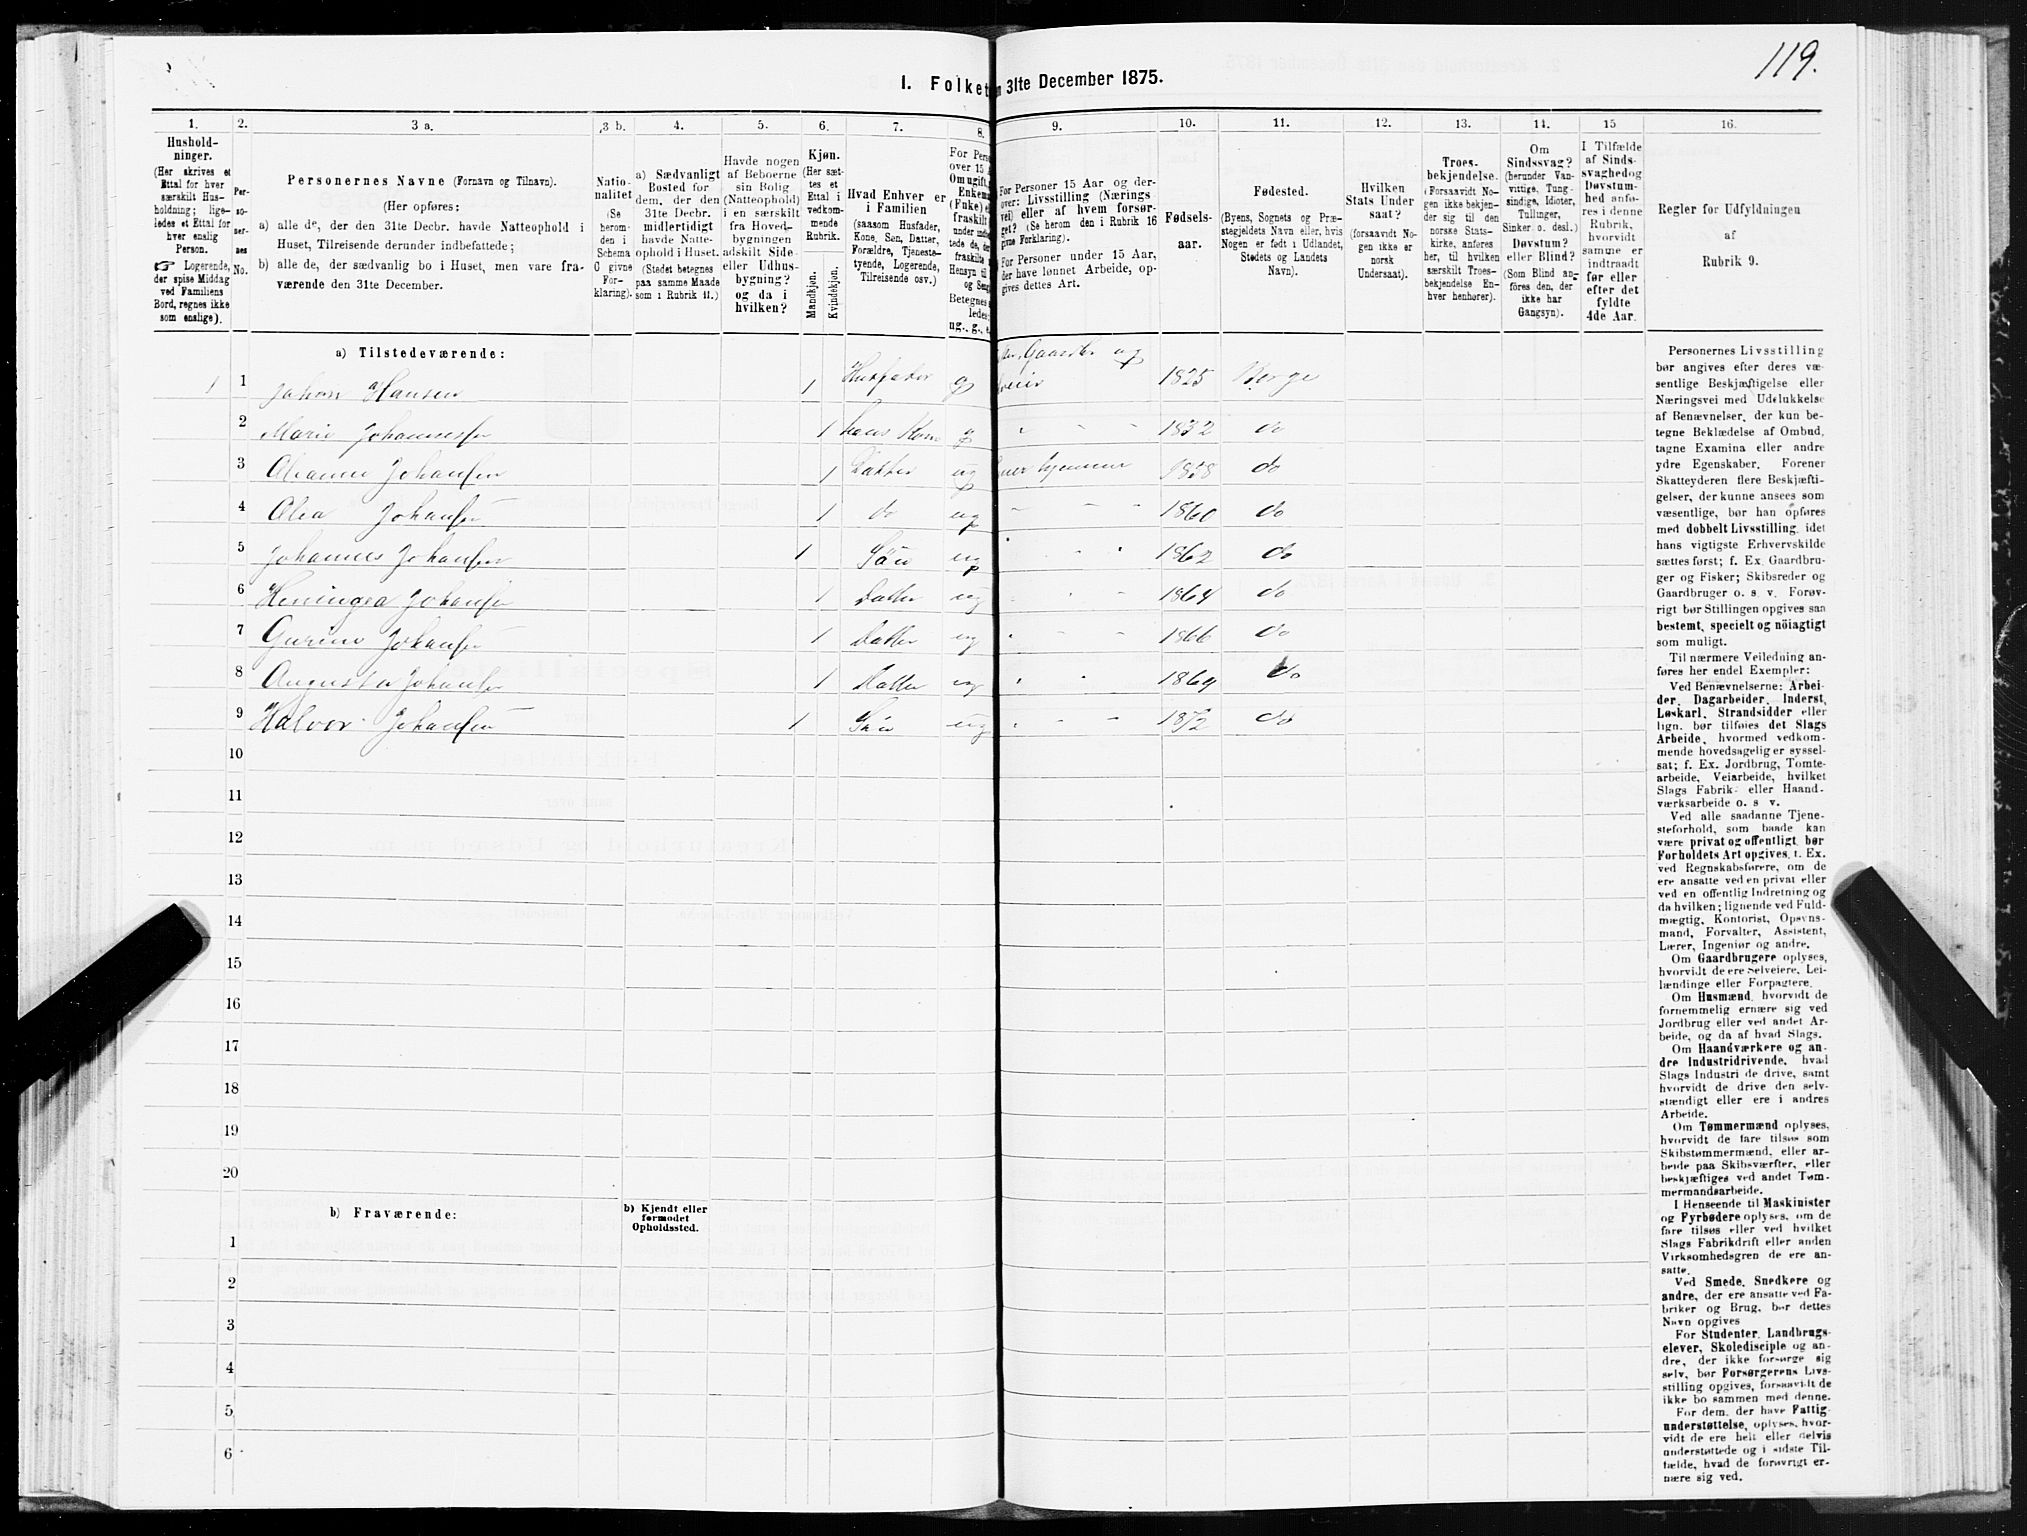 119.
I. Folket n 31te December 1875.
1. 2. 3 a. 3 b. 4. 5. 6. 7. 8. 9. 10. 11. 12. 13. 14. 15 16.
Hushold-
ninger.
(Her skrives et
Ettal for hver
særskilt Hus-
holdning; lige-
ledes et Ettal for
hver enslig
Person.
☞ Logerende,
der spise Middag
ved Familiens
Bord, regnes ikke
som enslige).
Per-
so-
ner-
nes
No.
Personernes Navne (Fornavn og Tilnavn).
(Her opføres:
a) alle de, der den 31te Decbr. havde Natteophold i
Huset, Tilreisende derunder indbefattede;
b) alle de, der sædvanlig bo i Huset, men vare fra-
værende den 31te December.
Natio-
nalitet
(Se
herom-
den i
Schema
C givne
For-
klaring).
a) Sædvanligt
Bosted for
dem, der den
31te Decbr.
midlertidigt
havde Natte-
ophold i Huset.
(Stedet betegnes
paa samme Maade
som i Rubrik 11.)
Havde nogen
af Beboerne
sin Bolig
(Natteophold)
i en særskilt
fra Hoved-
bygningen
adskilt Side-
eller Udhus-
bygning?
og da i
hvilken?
Kjøn.
(Her sæt-
tes et
Ettal i
vedkom-
mende
Rubrik.
Mandkjøn.
Kvindekjøn.
Hvad Enhver er
i Familien
(saasom Husfader,
Kone, Søn, Datter,
Forældre, Tjeneste-
tyende, Logerende,
Tilreisende osv.)
For Pers
over 15 A
Om ugift,
Enkem
(Fuke) e
fraskilt
Betegnes
ledes:
ug., g., e.
For Personer 15 Aar og der-
over: Livsstilling (Nærings-
vei) eller af hvem forsør-
get? (Se herom den i Rubrik 16
givne Forklaring).
For Personer under 15 Aar,
der have lønnet Arbeide, op-
gives dettes Art.
Fødsels-
aar.
Fødested.
(Byens, Sognets og Præ-
stegjeldets Navn eller, hvis
Nogen er født i Udlandet,
Stedets og Landets
Navn).
Hvilken
Stats Under
saat?
(forsaavidt No-
gen ikke er
norsk
Undersaat).
Troes-
bekjendelse.
(Forsaavidt No-
gen ikke bekjen-
der sig til den
norske Stats-
kirke, anføres
her, til hvilken
særskilt Troes-
bekjendelse En-
hver henhører).
Om
Sindssvag?
(herunder Van-
vittige, Tung-
sindige, Idioter,
Tullinger,
Sinker o. desl.)
Døvstum?
eller Blind?
(Som Blind an-
føres den, der
ikke har
Gangsyn).
I Tilfælde
af Sinds-
svaghed og
Døvstum-
hed anfø-
res i denne
Rubrik,
hvorvidt
samme er
indtraadt
før eller
efter det
fyldte
4de Aar.
Regler for Udfyldningen
af
Rubrik 9.
a) Tilstedeværende:
1 1 Johan Hansen 1 Husfader g 1825 Borge
2 Marie Johannesen 1 hans Kone g " " " 1832 do
3 Johansen 1 Datter ug 1858 do
4 Olea Johansen 1 do ug " " " 1860 do
5 Johannes Johansen 1 Søn ug " " " 1862 do
6 Heningea Johansen 1 Datter ug " " " 1864 do
7 Gurine Johansen 1 Datter ug " " " 1866 do
8 Augusta Johansen 1 Datter ug " " 1869 do
9 Halvor Johansen 1 Søn ug " " " 1872 do
10
11
12
13
14
15
16
17
18
19
20
b) Fraværende:
b) Kjendt eller
formodet
Opholdssted.
1
2
3
4
5
6
Personernes Livsstilling
bør angives efter deres væ-
sentlige Beskjæftigelse eller
Næringsvei med Udelukkelse
af Benævnelser, der kun be-
tegne Beklædelse af Ombud,
tagne Examina eller andre
ydre Egenskaber. Forener
Skatteyderen flere Beskjæfti-
gelser, der kunne ansees som
væsentlige, bør han opføres
med dobbelt Livsstilling, idet
hans vigtigste Erhvervskilde
sættes først; f. Ex. Gaardbru-
ger og Fisker; Skibsreder og
Gaardbruger o. s. v. Forøv-
rigt bør Stillingen opgives saa
bestemt, specielt og nöiagtigt
som muligt.
Til nærmere Veiledning an-
føres her endel Exempler:
Ved Benævnelserne: Arbei-
der, Dagarbeider, Inderst,
Løskarl, Strandsidder eller
lign. bør tilføies det Slags
Arbeide, hvormed vedkom-
mende hovedsagelig er syssel-
sat; f. Ex. Jordbrug, Tomte-
arbeide, Veiarbeide, hvilket
Slags Fabrik- eller Haand-
værksarbeide o. s. v.
Ved alle saadanne Tjene-
steforhold, som baade kan
være privat og offentligt, bør
Forholdets Art opgives, f. Ex.
ved Regnskabsførere, om de
ere ansatte ved en privat eller
ved en offentlig Indretning og
da hvilken; lignende ved Fuld-
mægtig, Kontorist, Opsyns-
mand, Forvalter, Assistent,
Lærer, Ingeniør og andre.
Om Gaardbrugere oplyses,
hvorvidt de ere Selveiere, Lei-
lændinge eller Forpagtere.
Om Husmænd, hvorvidt de
fornemmelig ernære sig ved
Jordbrug eller ved andet Ar-
beide, og da af hvad Slags.
Om Haandværkere og an-
dre Industridrivende, hvad
Slags Industri de drive, samt
hvorvidt de drive den selv-
stændigt eller ere i andres
Arbeide.
Om Tømmermænd oplyses,
hvorvidt de fare tilsøs som
Skibstømmermænd, eller ar-
beide paa Skibsværfter, eller
beskjæftiges ved andet Tøm-
mermandsarbeide.
I Henseende til Maskinister
og Fyrbødere oplyses, om de
fare tilsøs eller ved hvilket
Slags Fabrikdrift eller anden
Virksomhedsgren de ere an-
satte.
Ved Smede, Snedkere og
andre, der ere ansatte ved Fa-
briker og Brug, bør dettes
Navn opgives
For Studenter, Landbrugs-
elever, Skoledisciple og an-
dre, der ikke forsørge sig
selv, bør Forsørgerens Livs-
stilling opgives, forsaavidt de
ikke bo sammen med denne.
For dem, der have Fattig
understøttelse, oplyses, hvor-
vidt de ere helt eller delvis
understøttede og i sidste Til-
fælde, hvad de forøvrigt er-
nære sig ved.